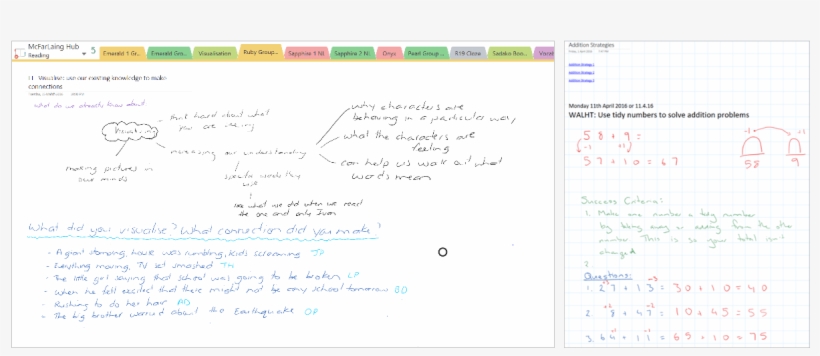 McFarLaing Hub
Reading
5
Emerald 1 Gr...
Emerald Gro...
Visualisation
Ruby Group...
Sapphire 1 NI
Sapphire 2 NI
Onyx
Pearl Group ...
R19 Cloze
Sadako Rea...
Vocab
LI: Visualise: use our existing knowledge to make
connections
what do we already know about
Visualising
think hard about what
you are
making pictures in
our minds
our understanding
specific words they
use
like what we did when we read
the one and only Ivan
why characters are
behaving in a particular way
what the characters are
feeling
can help us work out what
words mean
What did you visualise? What connection did you make?
- A giant stomping, house was rumbling, kids screaming JP
- Everything moving, TV got smashed TM
- The little girl saying that school was going to be broken LP
- When he felt excited that there might not be any school tomorrow BD
- Rushing to do her hair AD
- The big brother worried about the Earthquake OP
Addition Strategies
Addition Strategy 1
Addition Strategy 2
Addition Strategy 3
Monday 11th April 2016 or 11.4.16
WALHT: Use tidy numbers to solve addition problems
58 + 9 =
-1 +1
57 + 10 = 67
-1 +1
58 9
Success Criteria:
1. Make one number a tidy number
by taking away or adding from the other
number. This is so your total isn't
changed
2.
Questions:
+3 -3
1. 27 + 13 = 30 + 10 = 40
+2 -2
2. 8 + 47 = 10 + 45 = 55
+1 -1
3. 64 + 11 = 65 + 10 = 75